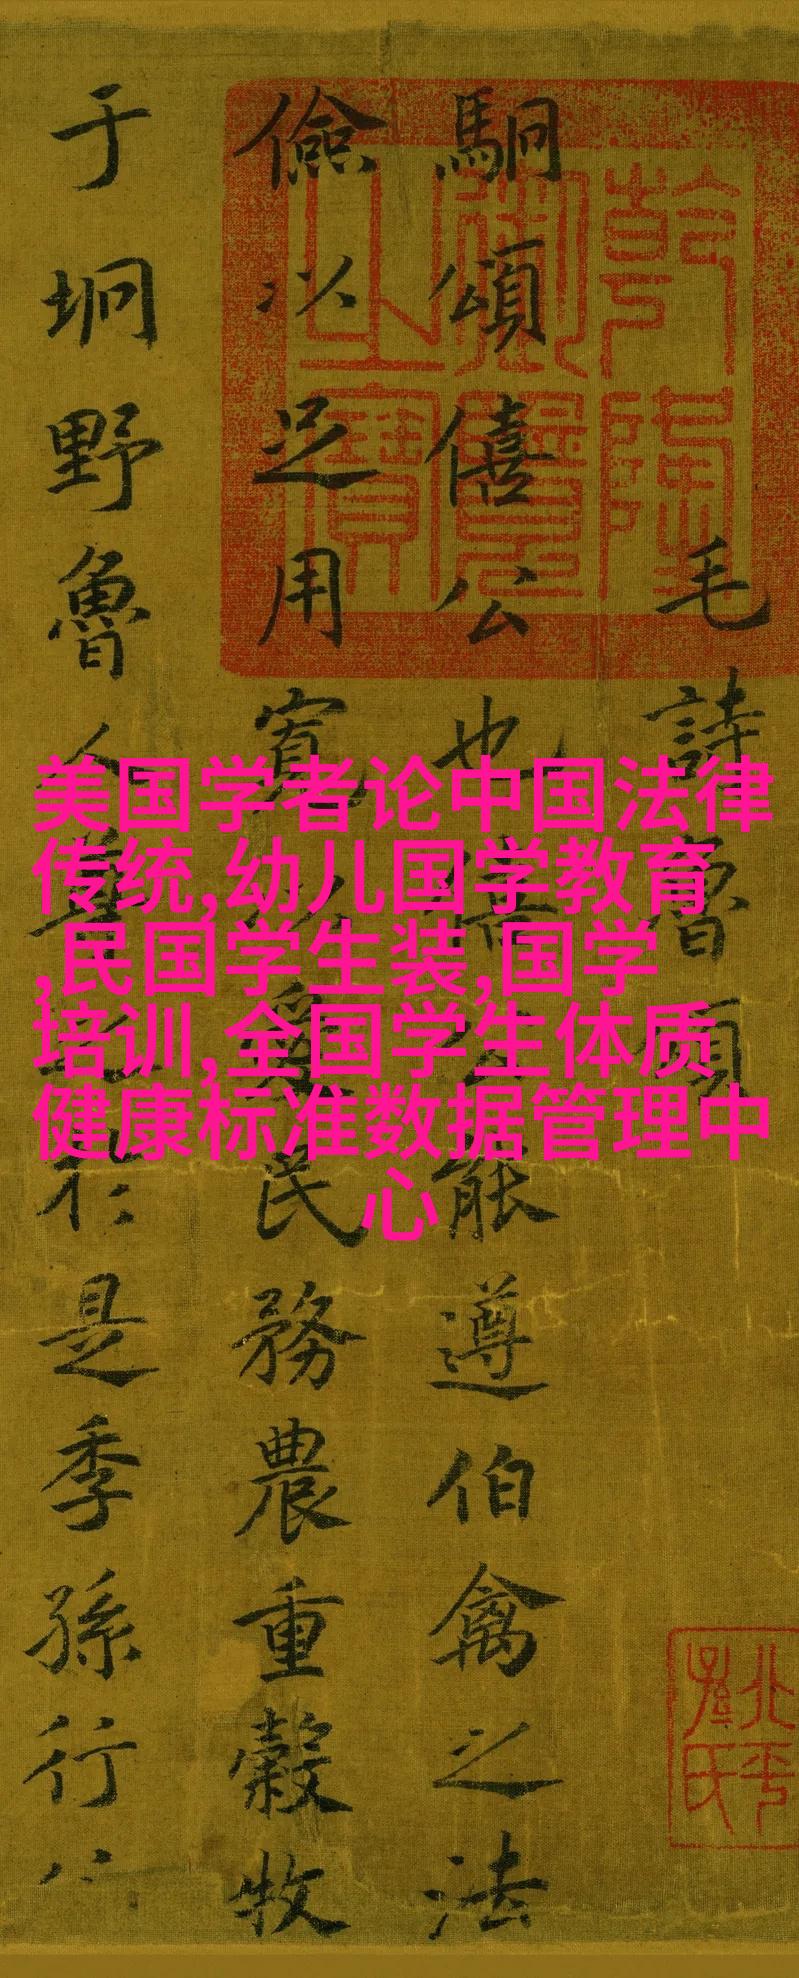 毛詩魯頌
駉頌僖公也僖公能遵伯禽之法
儉以足用寬以愛民務農重穀牧
于坰野魯人尊之於是季孫行
乾隆
御覽
之寶
北平
孫氏
美国学者论中国法律
传统,幼儿国学教育
,民国学生装,国学
培训,全国学生体质
健康标准数据管理中
心